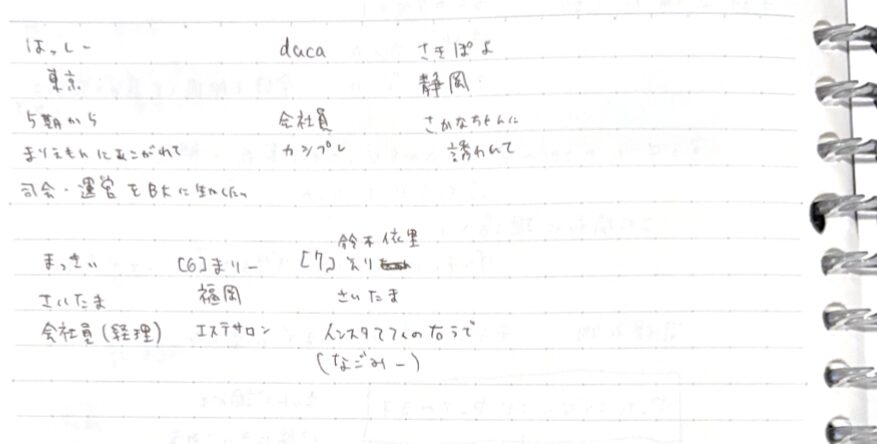 はっしー daca さきぽよ
東京 静岡
5期から 会社員 さかなちゃんに
まりえもんにあこがれて カンプレ 誘われて
司会・運営をBKに生かしたい
鈴木依里
まっきい [6]まりー [7]えり
さいたま 福岡 さいたま
会社員(経理) エステサロン インスタでフォローのなうで
(なごみー)